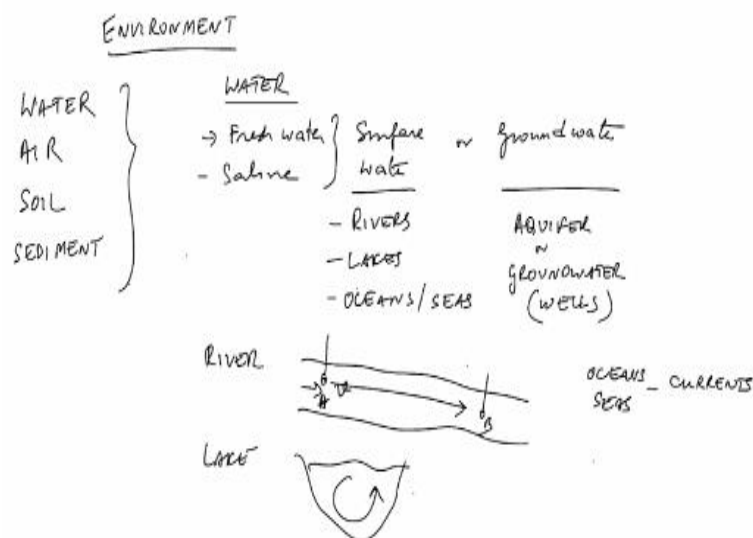 ENVIRONMENT
WATER
AIR
SOIL
SEDIMENT
WATER
→ Fresh water
- Saline
Surface
water
or
Groundwater
- RIVERS
- LAKES
- OCEANS/SEAS
AQUIFER
or
GROUNDWATER
(WELLS)
RIVER
A
B
OCEANS - CURRENTS
SEAS
LAKE